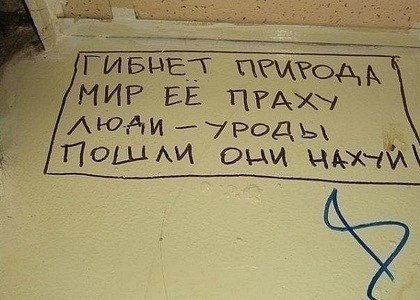 ГИБНЕТ ПРИРОДА
МИР ЕЁ ПРАХУ
ЛЮДИ – УРОДЫ
ПОШЛИ ОНИ НАХУЙ!